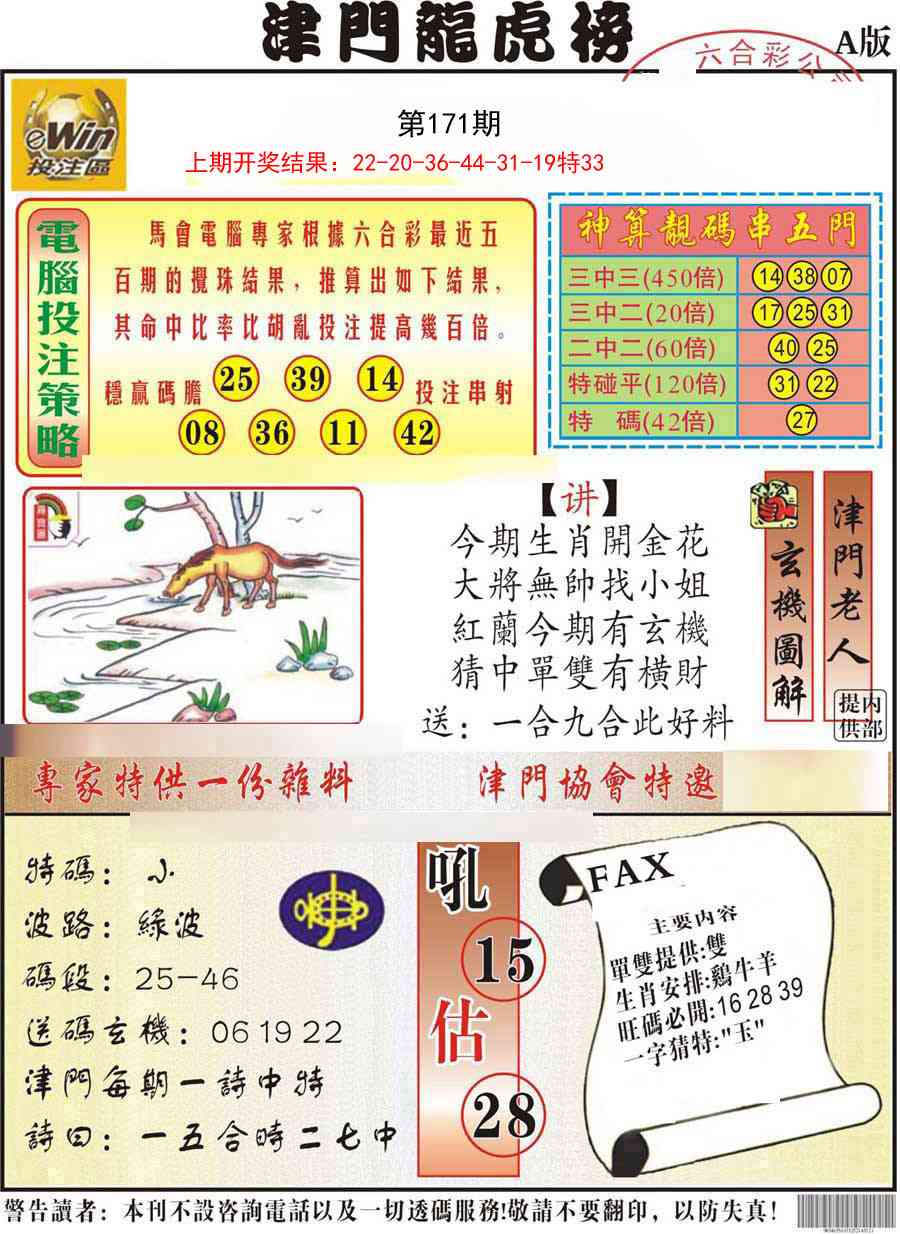 津門龍虎榜
A版
六合彩公
eWin
投注區
第171期
上期开奖结果：22-20-36-44-31-19特33
電腦投注策略
馬會電腦專家根據六合彩最近五
百期的攪珠結果，推算出如下結果，
其命中比率比胡亂投注提高幾百倍。
穩贏碼膽 25 39 14 投注串射
08 36 11 42
神算靚碼串五門
三中三(450倍) 14 38 07
三中二(20倍) 17 25 31
二中二(60倍) 40 25
特碰平(120倍) 31 22
特 碼(42倍) 27
【讲】
今期生肖開金花
大將無帥找小姐
紅蘭今期有玄機
猜中單雙有橫財
送：一合九合此好料
玄機圖解
津門老人
内部提供
專家特供一份雜料
津門協會特邀
特碼：小
波路：綠波
碼段：25-46
送碼玄機：06 19 22
津門每期一詩中特
詩曰：一五合時二七中
吼
15
估
28
FAX
主要内容
單雙提供:雙
生肖安排:鷄牛羊
旺碼必開:16 28 39
一字猜特:"玉"
警告讀者：本刊不設咨詢電話以及一切透碼服務!敬請不要翻印，以防失真！